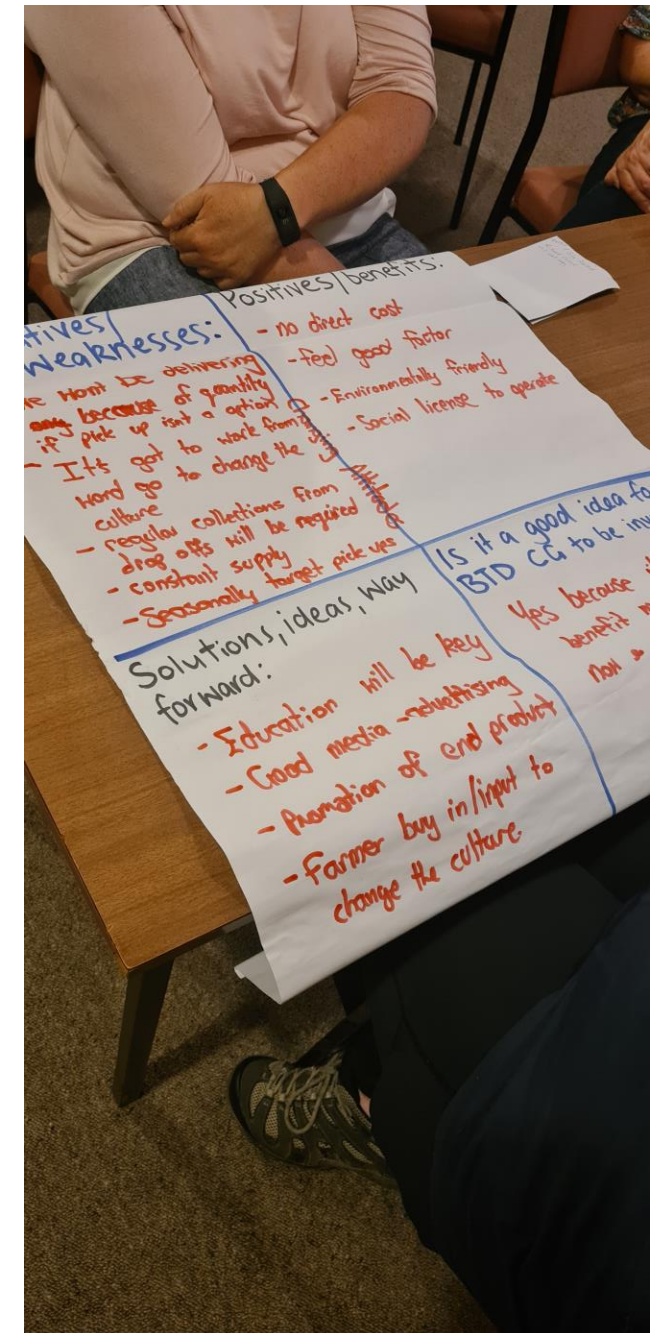 tives/
weaknesses:
Wont be delivering
because of quantity
if pick up isn't a option
- It's got to work from
word go to change the
culture
- regular collections from
drop offs will be required
- constant supply
- Seasonally target pick ups
Positives/benefits:
- no direct cost
- feel good factor
- Environmentally friendly
- Social license to operate
Solutions, ideas, way
forward:
- Education will be key
- Good media - advertising
- Promotion of end product
- Farmer buy in/input to
change the culture.
Is it a good idea fo
BTD CG to be inv
Yes because i
benefit
now